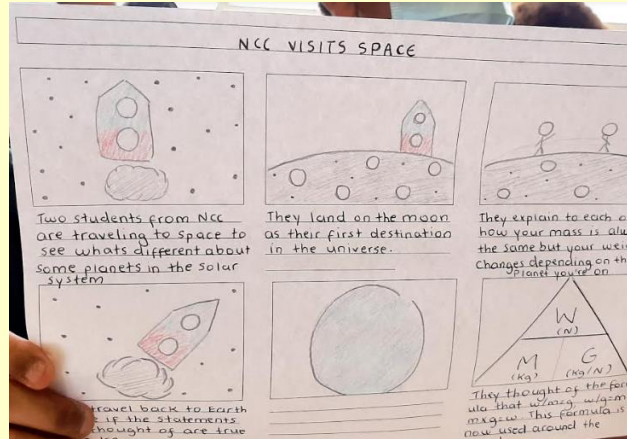 NCC VISITS SPACE
Two students from NCC
are traveling to space to
see whats different about
some planets in the solar
system
They land on the moon
as their first destination
in the universe.
They explain to each
how your mass is
the same but your
Changes depending on
Planet you're on
travel back to Earth
if the statements
thought of are true
W
(N)
M
(Kg)
G
(Kg/N)
They thought of the
ula that w/m=g, w/g=m
mxg=w. This formula is
now used around the